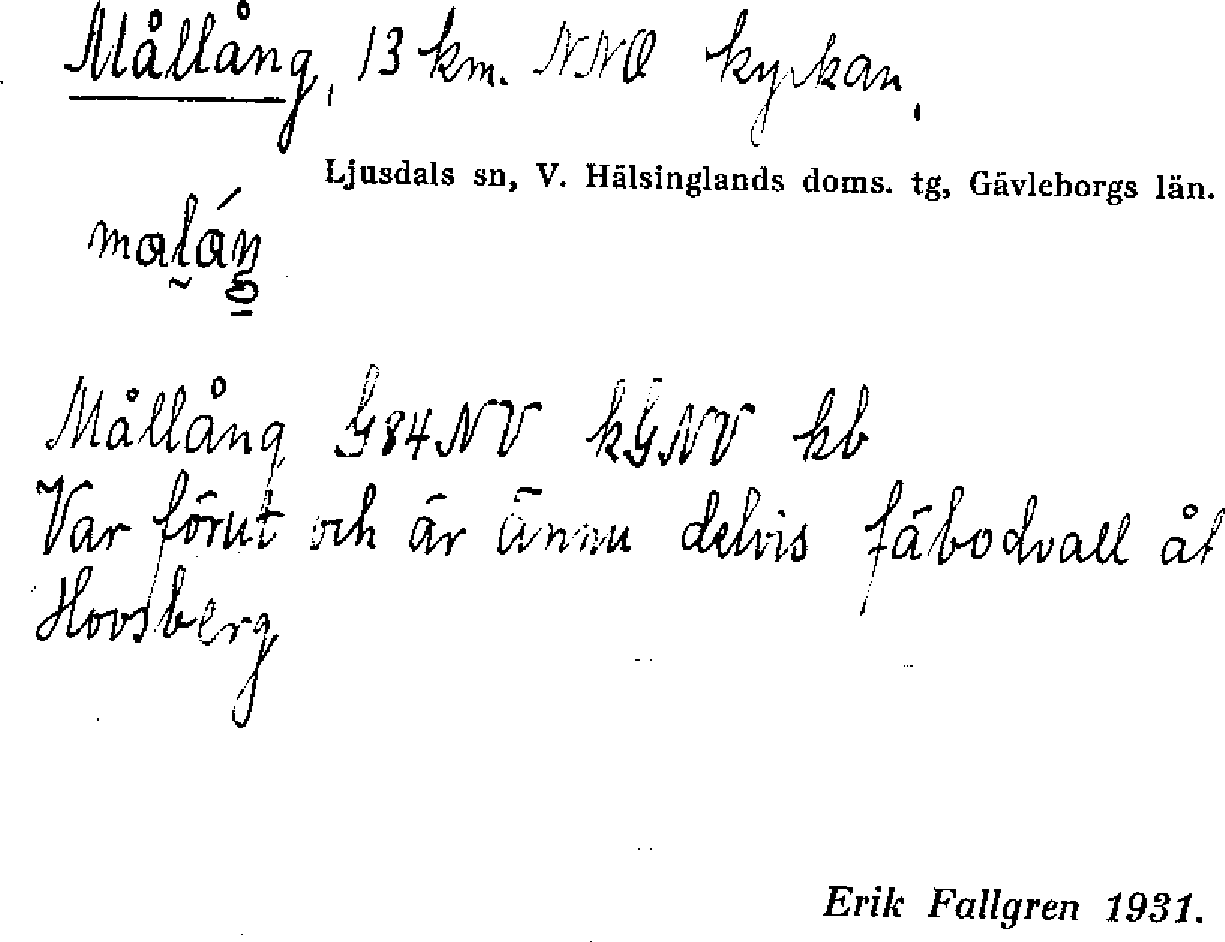 Mållång, 13 km. NNO kyrkan,
Ljusdals sn, V. Hälsinglands doms. tg, Gävleborgs län.
Mållång G84NV kGNV kb
Var förut och är ännu delvis fäbodvall åt
Hovsberg
Erik Fallgren 1931.